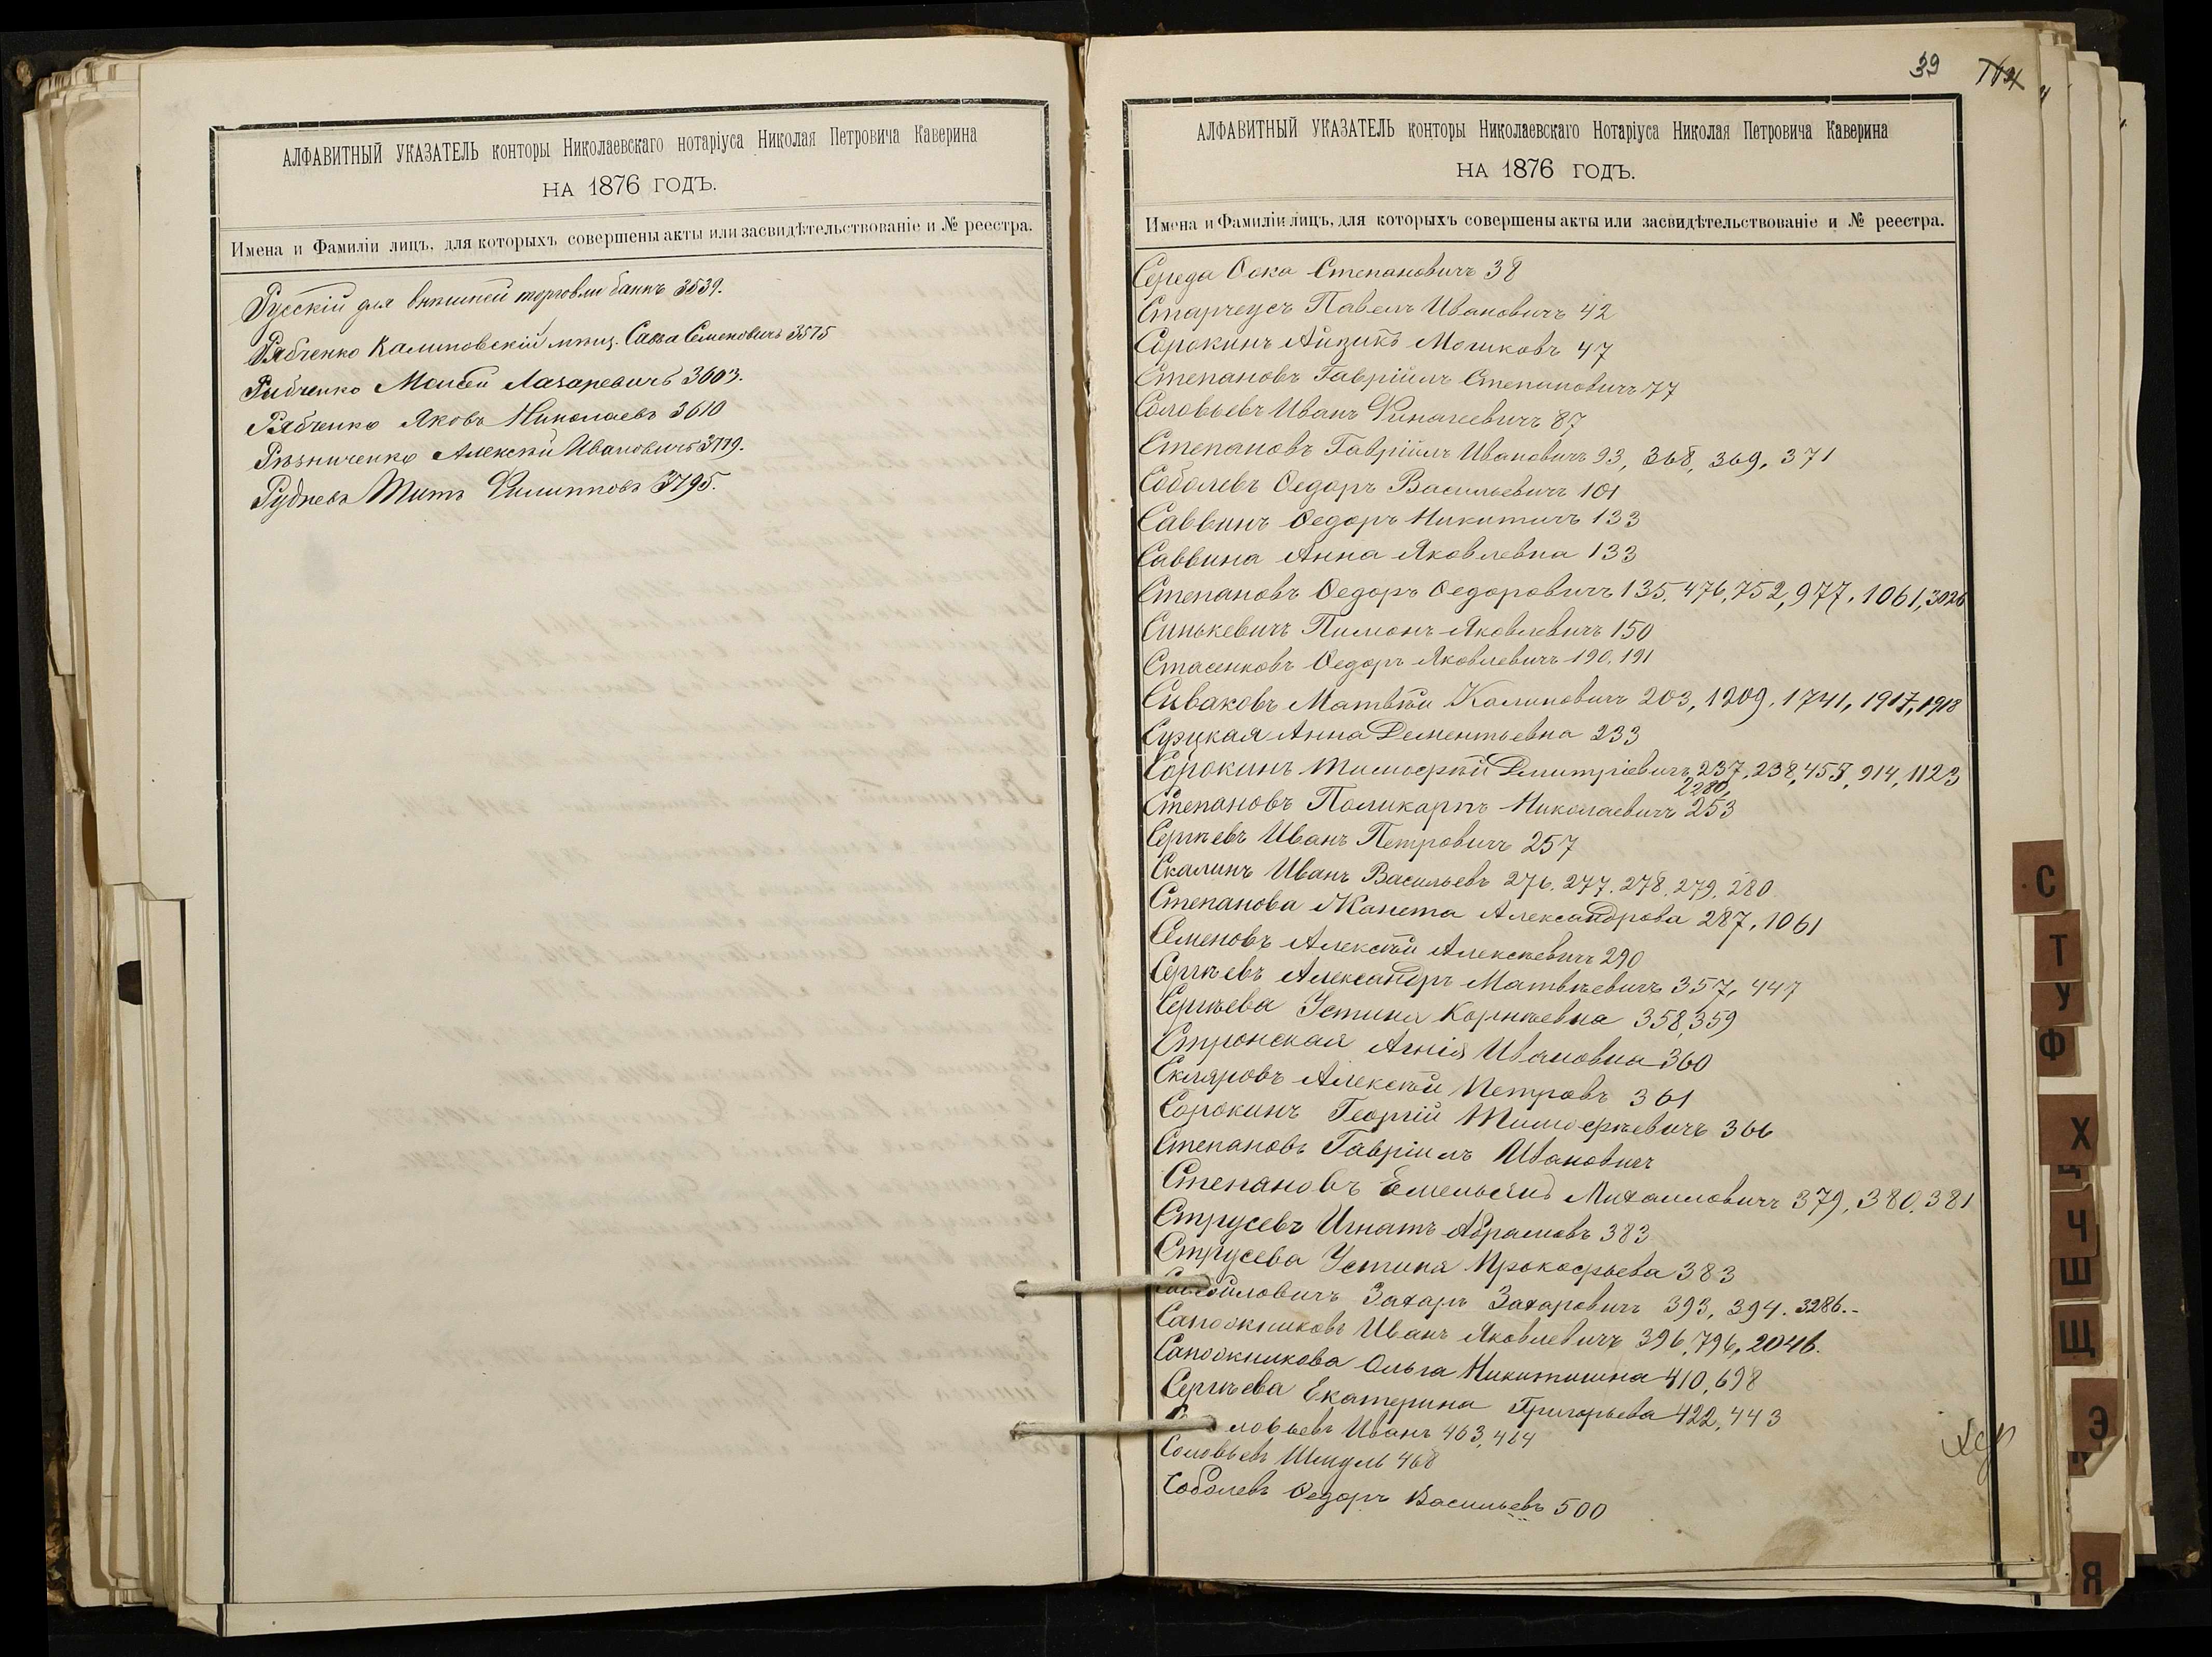 АЛФАВИТНЫЙ УКАЗАТЕЛЬ конторы Николаевскаго нотаріуса Николая Петровича Каверина
НА 1876 ГОДЪ.
Имена и Фамиліи лицъ, для которыхъ совершены акты или засвидѣтельствованіе и № реестра.
Русскій для внѣшней торговли банкъ 3539.
Рябченко Калиновскій мѣщ. Савва Семеновичъ 3575
Рябченко Моисей Лазаревичъ 3603.
Рябченко Яковъ Николаевъ 3610
Рѣзниченко Алексѣй Ивановичъ 3719.
Рудневъ Титъ Филипповъ 3795.
39
АЛФАВИТНЫЙ УКАЗАТЕЛЬ конторы Николаевскаго Нотаріуса Николая Петровича Каверина
НА 1876 ГОДЪ.
Имена и Фамиліи лицъ, для которыхъ совершены акты или засвидѣтельствованіе и № реестра.
Середа Ѳока Степановичъ 38
Старчеусъ Павелъ Ивановичъ 42
Сорокинъ Айзикъ Мошковъ 47
Степановъ Гавріилъ Степановичъ 77
Соловьевъ Иванъ 87
Степановъ Гавріилъ Ивановичъ 93, 368, 369, 371
Соболевъ Ѳедоръ Васильевичъ 101
Саввинъ Ѳедоръ Никитичъ 133
Саввина Анна Яковлевна 133
Степановъ Ѳедоръ Ѳедоровичъ 135, 476, 752, 977, 1061, 3026
Синькевичъ Пимонъ Яковлевичъ 150
Стасенковъ Ѳедоръ Яковлевичъ 190, 191
Сиваковъ Матвѣй Калиновичъ 203, 1209, 1741, 1917, 1918
Суцкая Анна Дементьевна 233
Сорокинъ Тимоѳей Дмитріевичъ 237, 238, 458, 914, 1123
2280,
Степановъ Поликарпъ Николаевичъ 253
Сергѣевъ Иванъ Петровичъ 257
Скалинъ Иванъ Васильевъ 276, 277, 278, 279, 280
Степанова Жанета Александрова 287, 1061
Семеновъ Алексѣй Алексѣевичъ 290
Сергѣевъ Александръ Матвѣевичъ 357, 447
Сергѣева Устинья Корнѣевна 358, 359
Стронская Агнія Ивановна 360
Скляровъ Алексѣй Петровъ 361
Сорокинъ Георгій Тимоѳѣевичъ 366
Степановъ Гавріилъ Ивановичъ
Степановъ Емельянъ Михайловичъ 379, 380, 381
Струсевъ Игнатъ Абрамовъ 383
Струсева Устинья Прокофьева 383
Самойловичъ Захаръ Захаровичъ 393, 394. 3286.-
Сапожниковъ Иванъ Яковлевичъ 396, 796, 2046.
Сапожникова Ольга Никитишна 410, 698
Сергѣева Екатерина Григорьева 422, 443
Соловьевъ Иванъ 463, 464
Соловьевъ Шмуль 468
Соболевъ Ѳедоръ Васильевъ 500
С
Т
У
Ф
Х
Ц
Ч
Ш
Щ
Э
Я